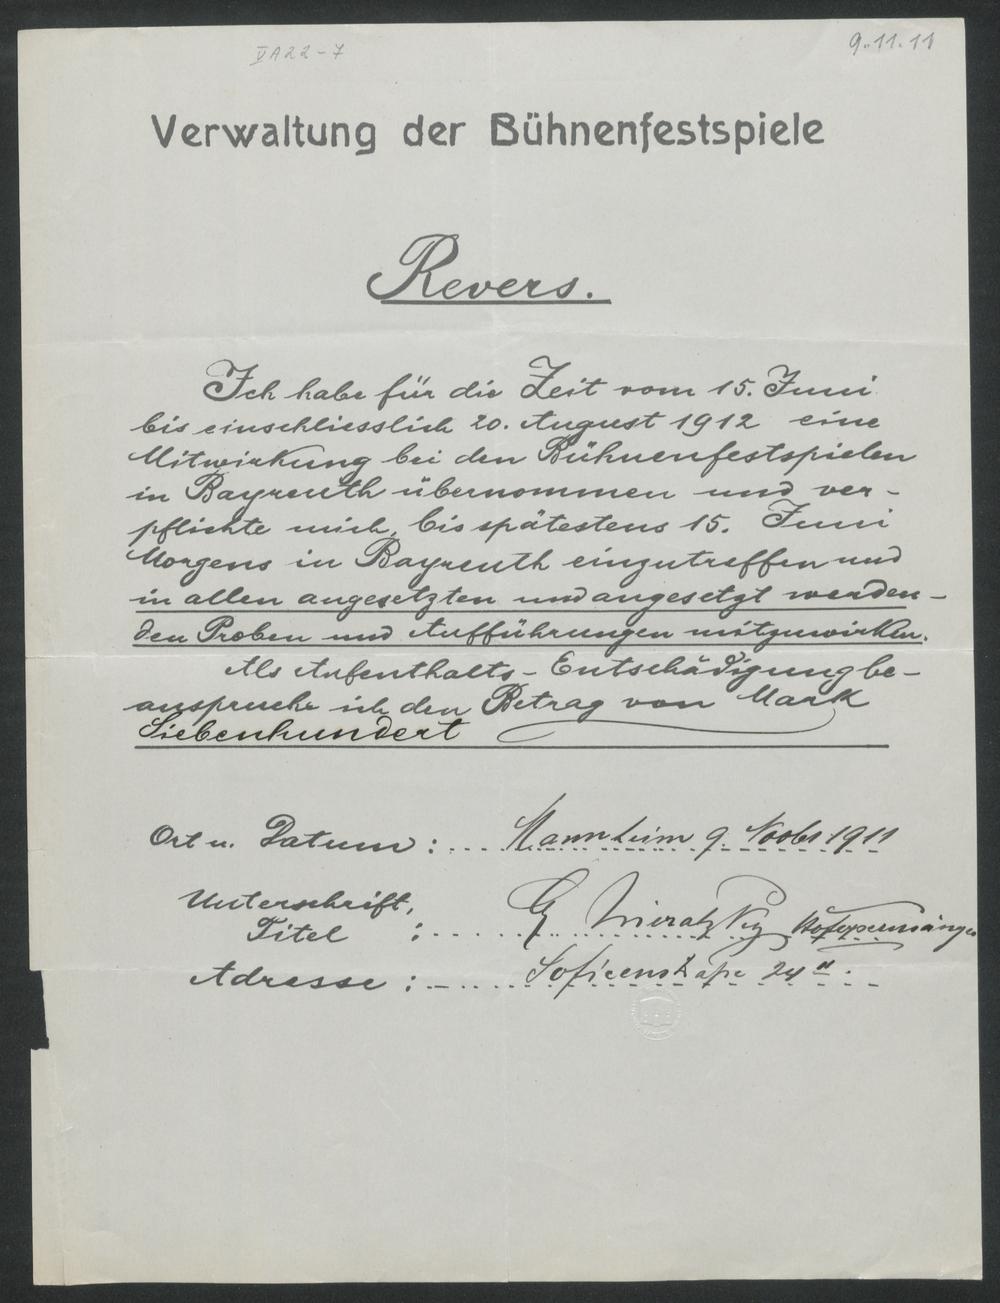 VA22-7
9.11.11
Verwaltung der Bühnenfestspiele
Revers.
Ich habe für die Zeit vom 15. Juni
bis einschliesslich 20. August 1912 eine
Mitwirkung bei den Bühnenfestspielen
in Bayreuth übernommen und ver-
pflichte mich, bis spätestens 15. Juni
Morgens in Bayreuth einzutreffen und
in allen angesetzten und angesetzt werden-
den Proben und Aufführungen mitzuwirken.
Als Aufenthalts-Entschädigung be-
anspruche ich den Betrag von Mark
Siebenhundert
Ort u. Datum: Mannheim 9. Novbr 1911
Unterschrift,
Titel : Hofopernsänger
Adresse: Sofienstraße 24